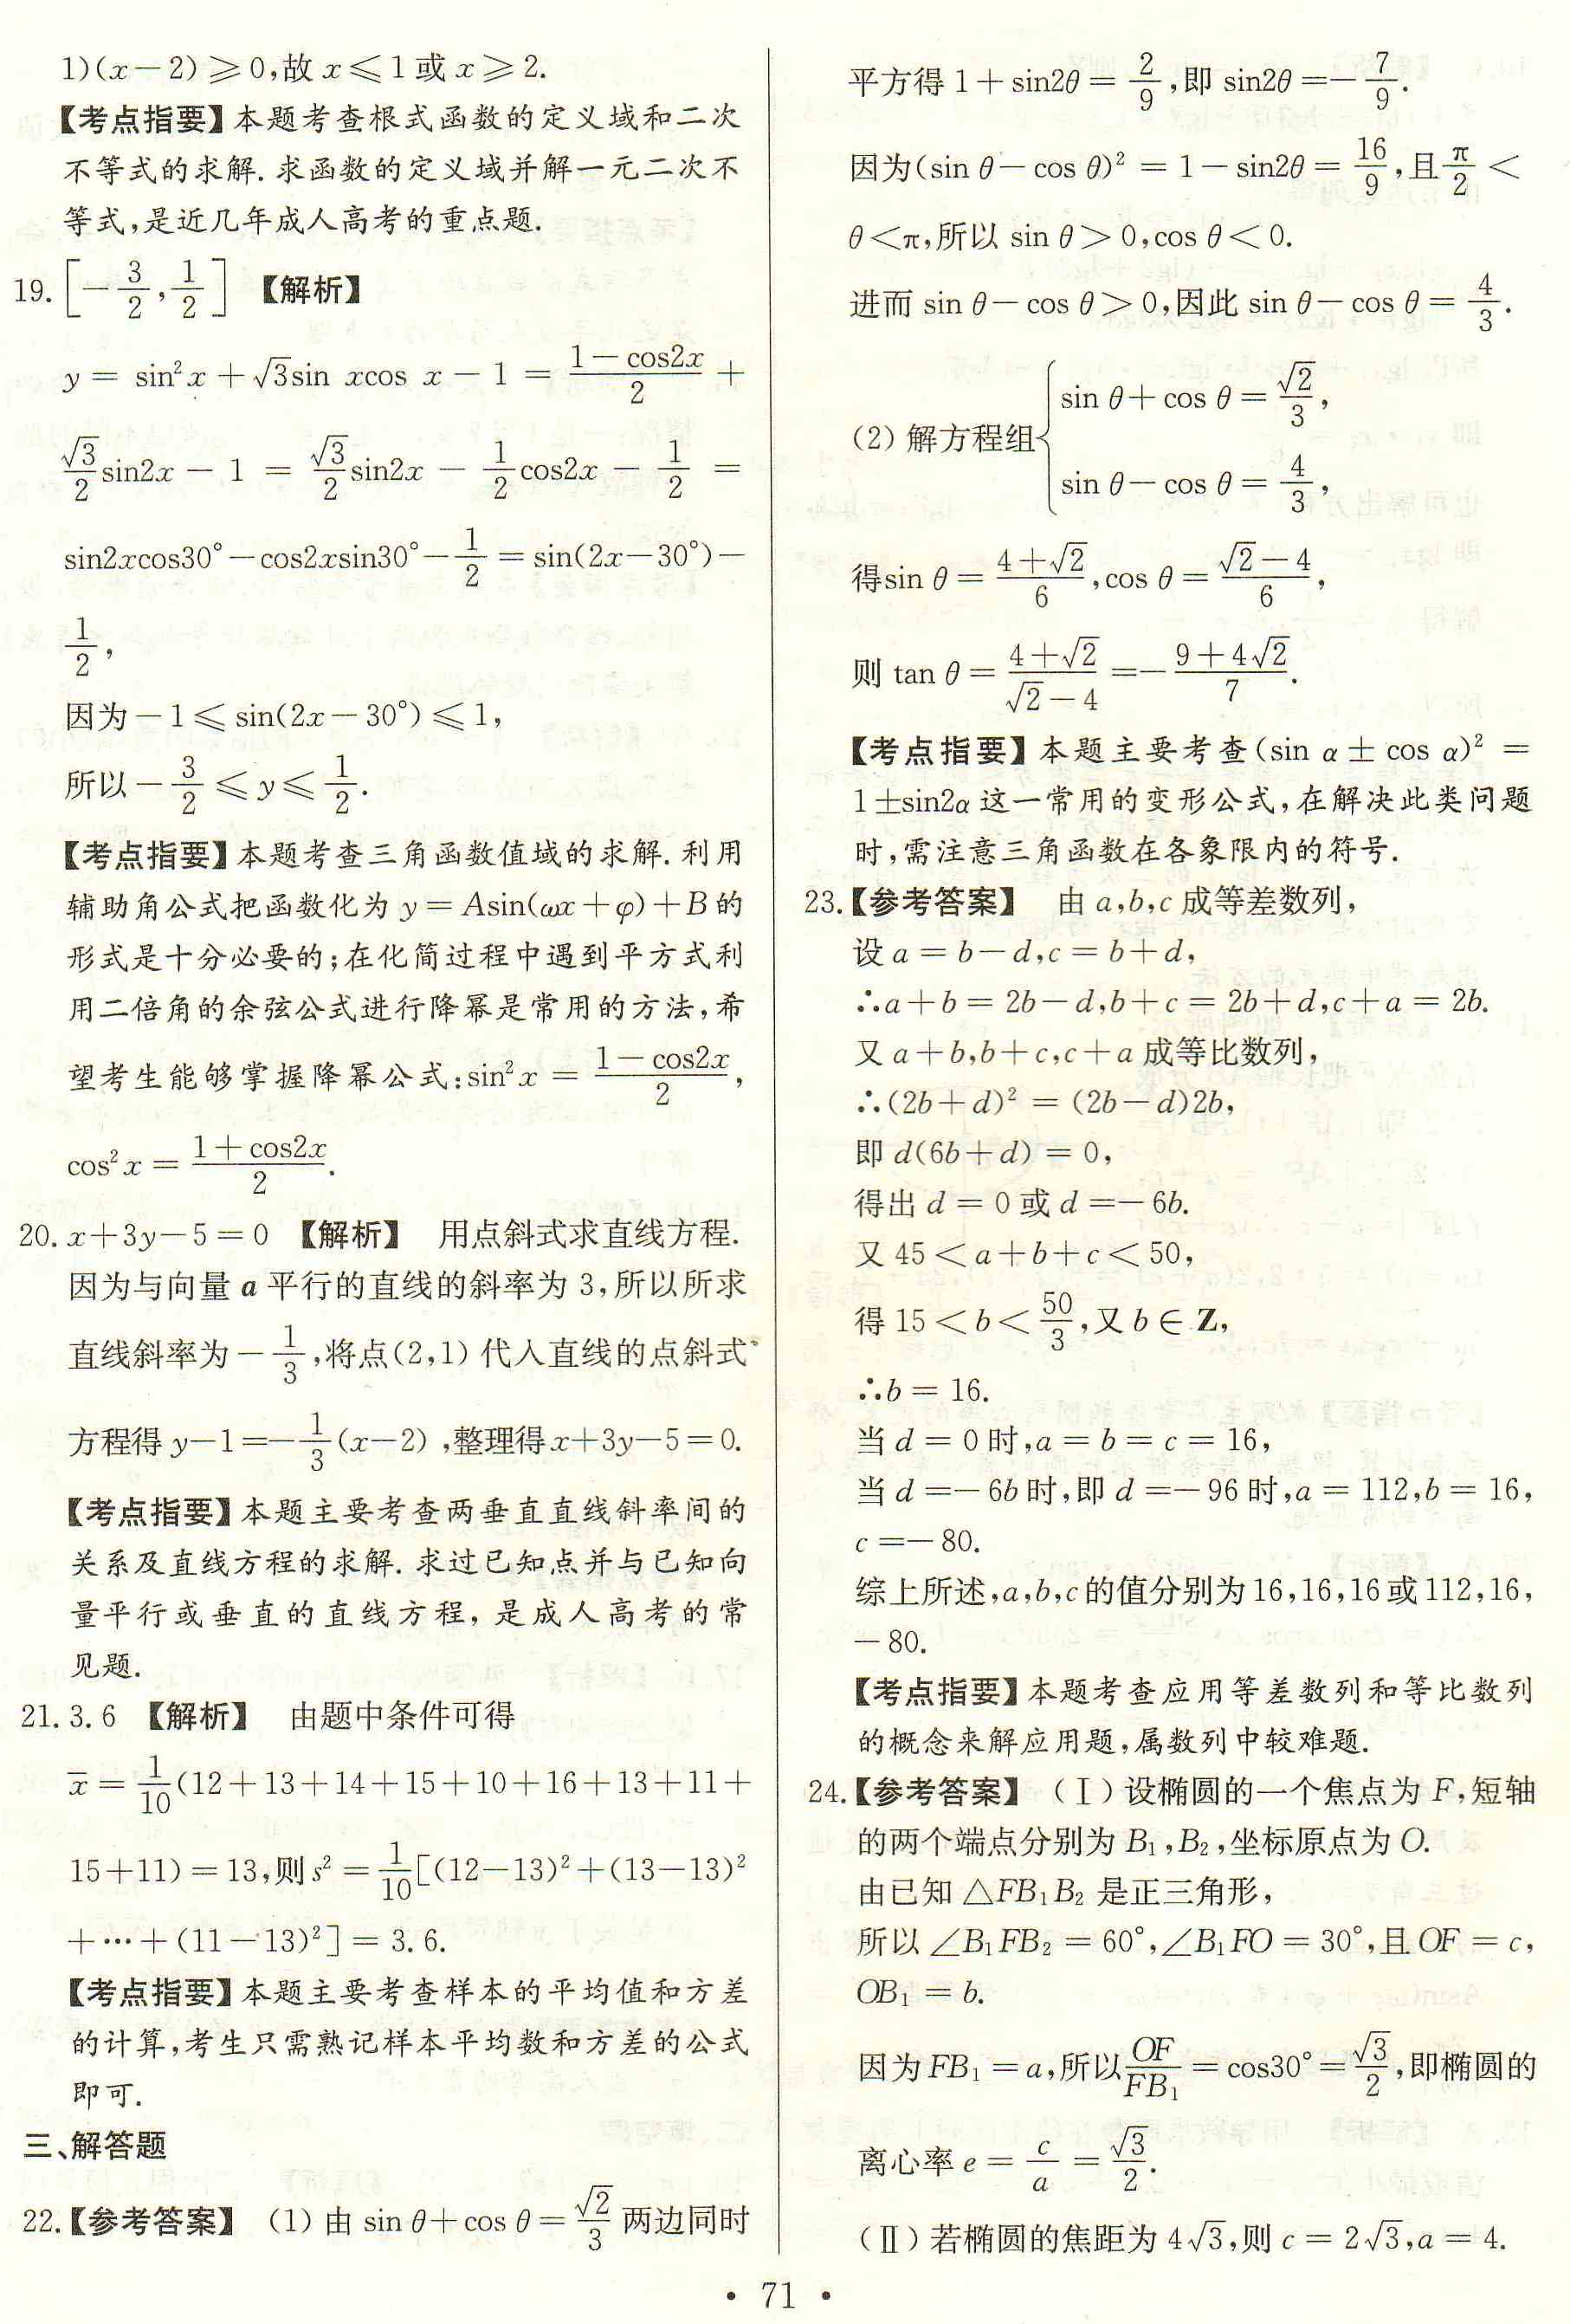 1)(x－2)≥0,故 x≤1 或 x≥2.
【考点指要】本题考查根式函数的定义域和二次
不等式的求解. 求函数的定义域并解一元二次不
等式,是近几年成人高考的重点题.
19. [－3/2,1/2] 【解析】
y = sin²x＋√3sin xcos x－1 = (1－cos2x)/2 ＋
√3/2 sin2x － 1 = √3/2 sin2x － 1/2 cos2x － 1/2 =
sin2xcos30°－cos2xsin30°－1/2 = sin(2x－30°)－
1/2,
因为－1≤sin(2x－30°)≤1,
所以－3/2≤y≤1/2.
【考点指要】本题考查三角函数值域的求解. 利用
辅助角公式把函数化为 y = Asin(ωx＋φ)＋B的
形式是十分必要的;在化简过程中遇到平方式利
用二倍角的余弦公式进行降幂是常用的方法,希
望考生能够掌握降幂公式:sin²x = (1－cos2x)/2,
cos²x = (1＋cos2x)/2.
20. x＋3y－5 = 0 【解析】 用点斜式求直线方程.
因为与向量 a 平行的直线的斜率为 3,所以所求
直线斜率为－1/3,将点(2,1) 代入直线的点斜式
方程得 y－1 =－1/3(x－2) ,整理得x＋3y－5 = 0.
【考点指要】本题主要考查两垂直直线斜率间的
关系及直线方程的求解. 求过已知点并与已知向
量平行或垂直的直线方程, 是成人高考的常
见题.
21. 3.6 【解析】 由题中条件可得
x̄ = 1/10(12＋13＋14＋15＋10＋16＋13＋11＋
15＋11) = 13,则 s² = 1/10[(12－13)²＋(13－13)²
＋…＋(11－13)²] = 3.6.
【考点指要】本题主要考查样本的平均值和方差
的计算,考生只需熟记样本平均数和方差的公式
即可.
三、解答题
22.【参考答案】 (1) 由 sin θ＋cos θ = √2/3 两边同时
平方得 1＋sin2θ = 2/9,即 sin2θ =－7/9.
因为(sin θ－cos θ)² = 1－sin2θ = 16/9,且π/2＜
θ＜π,所以 sin θ＞0,cos θ＜0.
进而 sin θ－cos θ＞0,因此 sin θ－cos θ = 4/3.
(2) 解方程组{sin θ＋cos θ = √2/3,
sin θ－cos θ = 4/3,
得sin θ = (4＋√2)/6,cos θ = (√2－4)/6,
则 tan θ = (4＋√2)/(√2－4) =－(9＋4√2)/7.
【考点指要】本题主要考查(sin α± cos α)² =
1±sin2α 这一常用的变形公式,在解决此类问题
时,需注意三角函数在各象限内的符号.
23.【参考答案】 由 a,b,c 成等差数列,
设 a = b－d,c = b＋d,
∴a＋b = 2b－d,b＋c = 2b＋d,c＋a = 2b.
又 a＋b,b＋c,c＋a 成等比数列,
∴(2b＋d)² = (2b－d)2b,
即 d(6b＋d) = 0,
得出 d = 0 或 d =－6b.
又 45＜a＋b＋c＜50,
得 15＜b＜50/3,又 b∈Z,
∴b = 16.
当 d = 0 时,a = b = c = 16,
当 d =－6b 时,即 d =－96 时,a = 112,b = 16,
c =－80.
综上所述,a,b,c的值分别为16,16,16或112,16,
－80.
【考点指要】本题考查应用等差数列和等比数列
的概念来解应用题,属数列中较难题.
24.【参考答案】 (Ⅰ) 设椭圆的一个焦点为 F,短轴
的两个端点分别为 B₁,B₂,坐标原点为 O.
由已知 △FB₁B₂ 是正三角形,
所以 ∠B₁FB₂ = 60°,∠B₁FO = 30°,且 OF = c,
OB₁ = b.
因为 FB₁ = a,所以OF/FB₁ = cos30° = √3/2,即椭圆的
离心率 e = c/a = √3/2.
(Ⅱ) 若椭圆的焦距为 4√3,则 c = 2√3,a = 4.
• 71 •